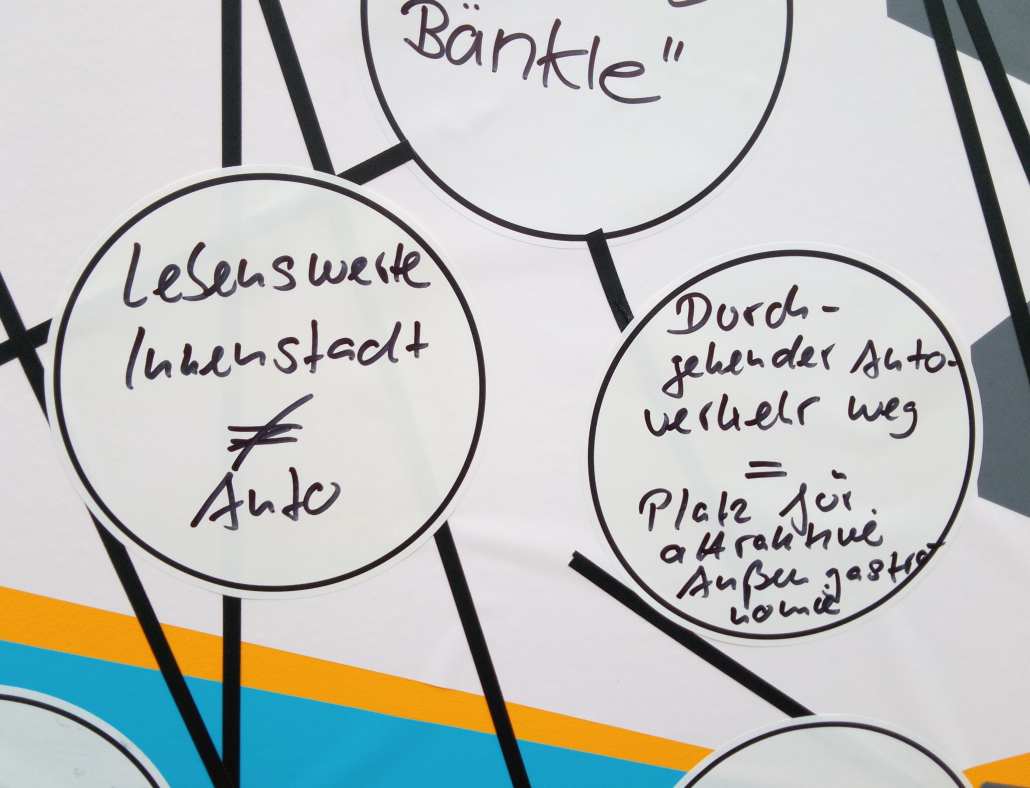 Bänkle"
Lebenswerte
Innenstadt
≠
Auto
Durch-
gehender Auto-
verkehr weg
=
Platz für
attraktive
Außengastro
nomie